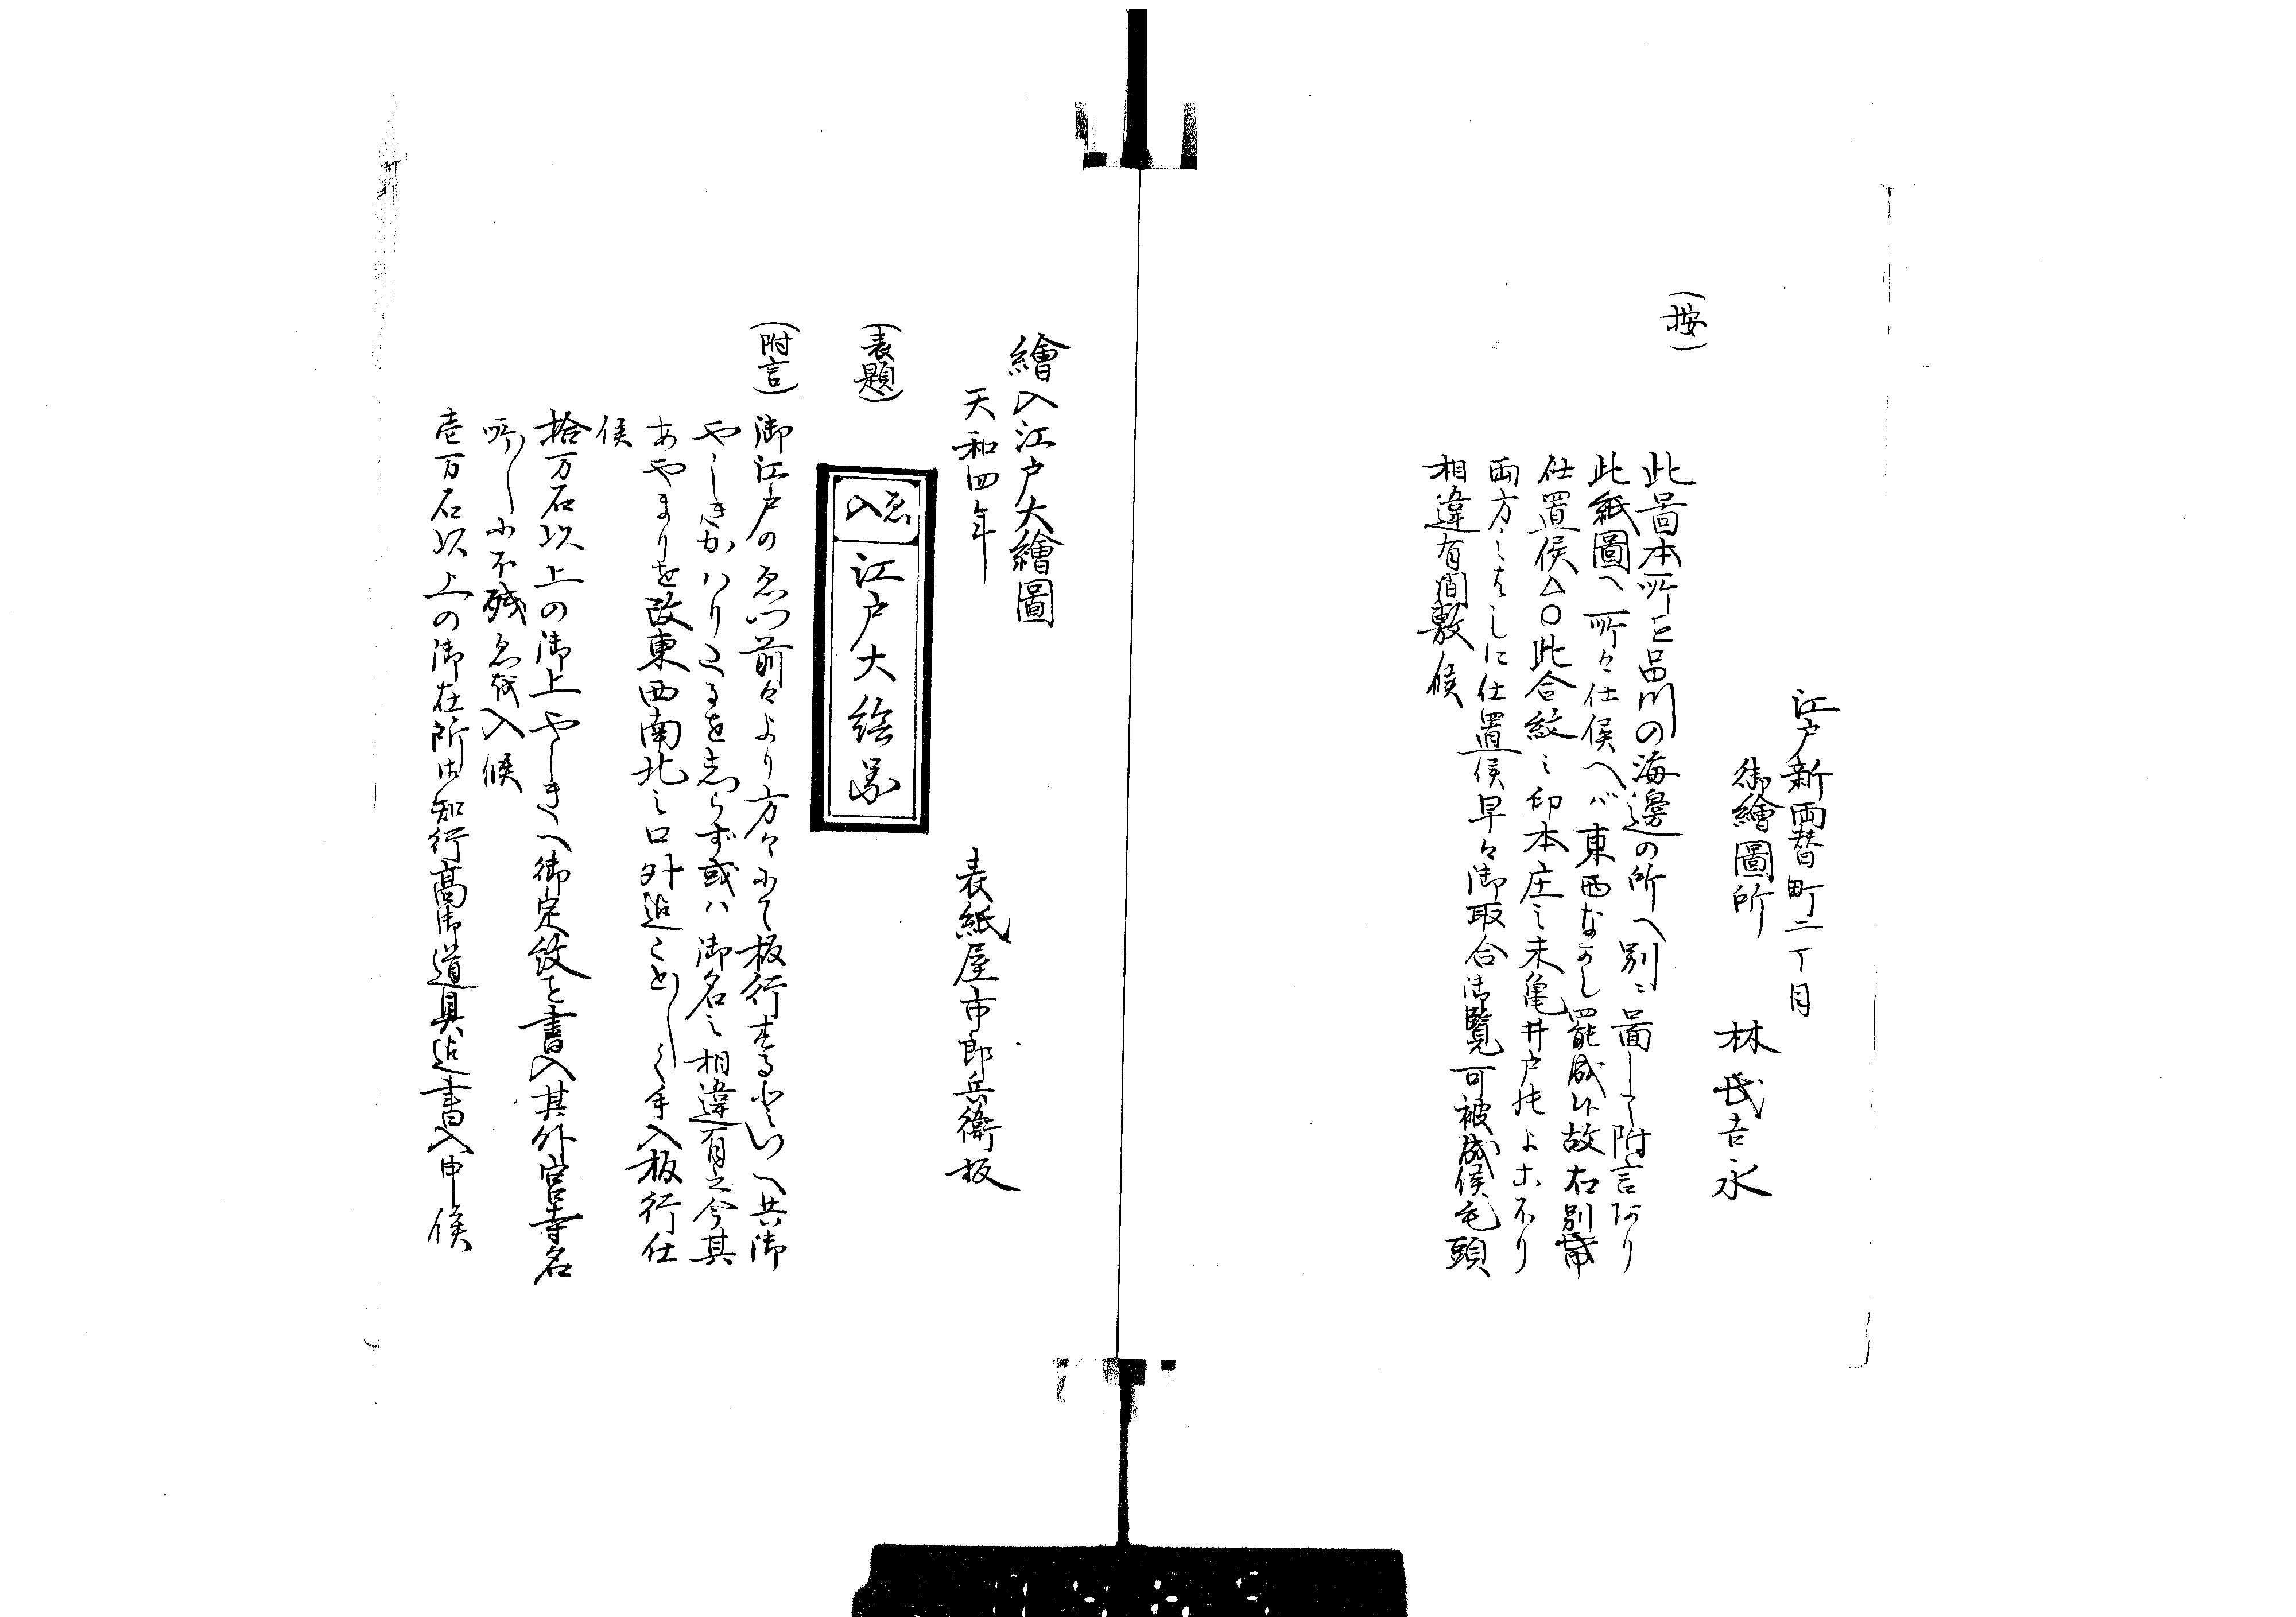 江戸新両替町二丁目
御繪圖所
林氏吉永
(按)
此圖本所と品川の海邊の所へ別ニ圖して附言あり
此紙圖へ所々仕候へバ東西なかし罷成候故右別帋
仕置候△〇此合紋之印本庄之末亀井戸
両方之はしに仕置候早々御取合御覧可被成候毛頭
相違有間敷候
繪入江戸大繪圖
天和四年
表紙屋市郎兵衛板
(表題)
ゑ入
江戸大絵図
(附言)
御江戸のゑづ前々より方々にて板行すると いへ共御
やしきかハりたるを志らず或ハ御名之相違有之今其
あやまりを改東西南北之口外迄こと〳〵く手入板行仕
候
拾万石以上の御上やしきへ御定紋を書入其外宮寺名
所〳〵不残ゑ越入候
壱万石以上の御在所御知行高御道具迄書入申候